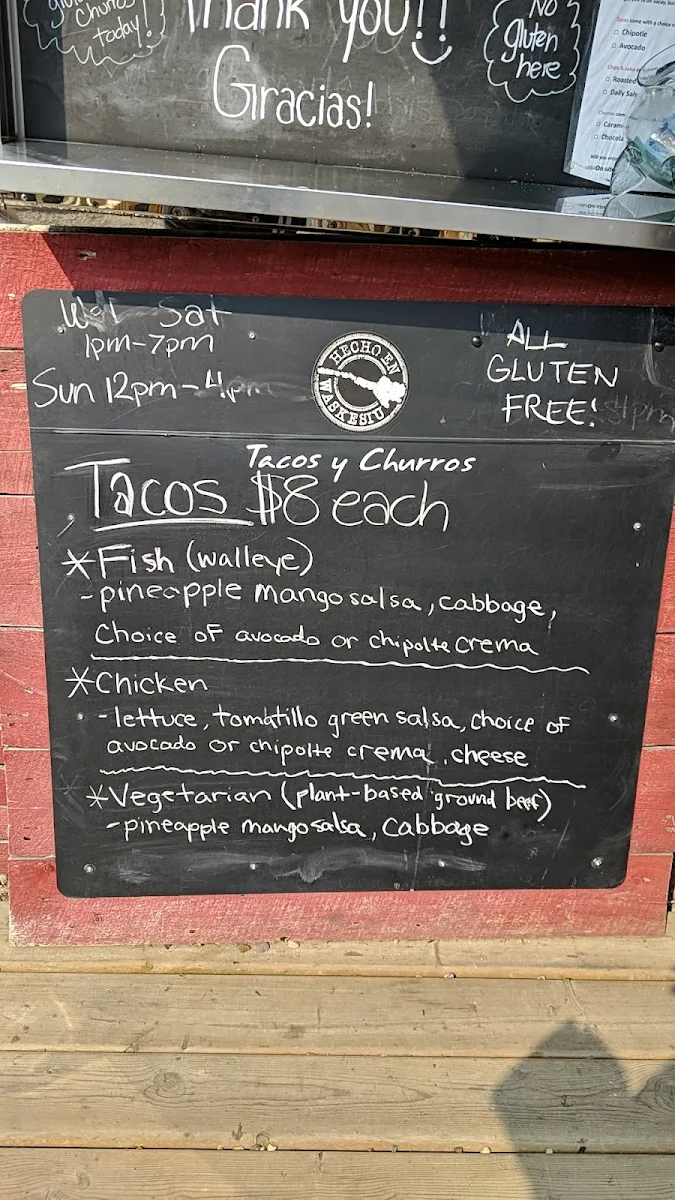 Churros
today!
Thank you!!
Gracias!
No
gluten
here
Tacos come with a choice of
Chipotle
Avocado
Roasted
Daily Sals
Carami
Chocola
Sat
1pm-7pm
Sun 12pm-4pm
HECHO EN
WASKESIU
ALL
GLUTEN
FREE!
Tacos y Churros
Tacos $8 each
*Fish (walleye)
-pineapple mango salsa, cabbage,
Choice of avocado or chipolte crema
*Chicken
-lettuce, tomatillo green salsa, choice of
avocado or chipolte crema, cheese
*Vegetarian (plant-based ground beef)
-pineapple mango salsa, Cabbage